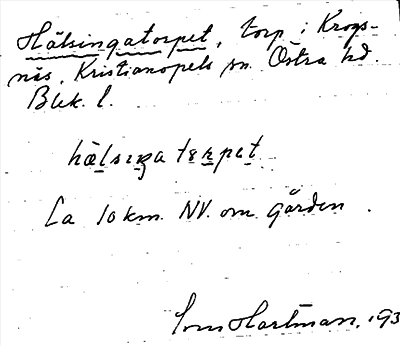 Hälsingatorpet, torp i Krogs-
näs, Kristianopels sn. Östra hd.
Blek. l.
hälsiŋa tɵrpet
Ca 10 km. NV. om gården.
Hartman, 193